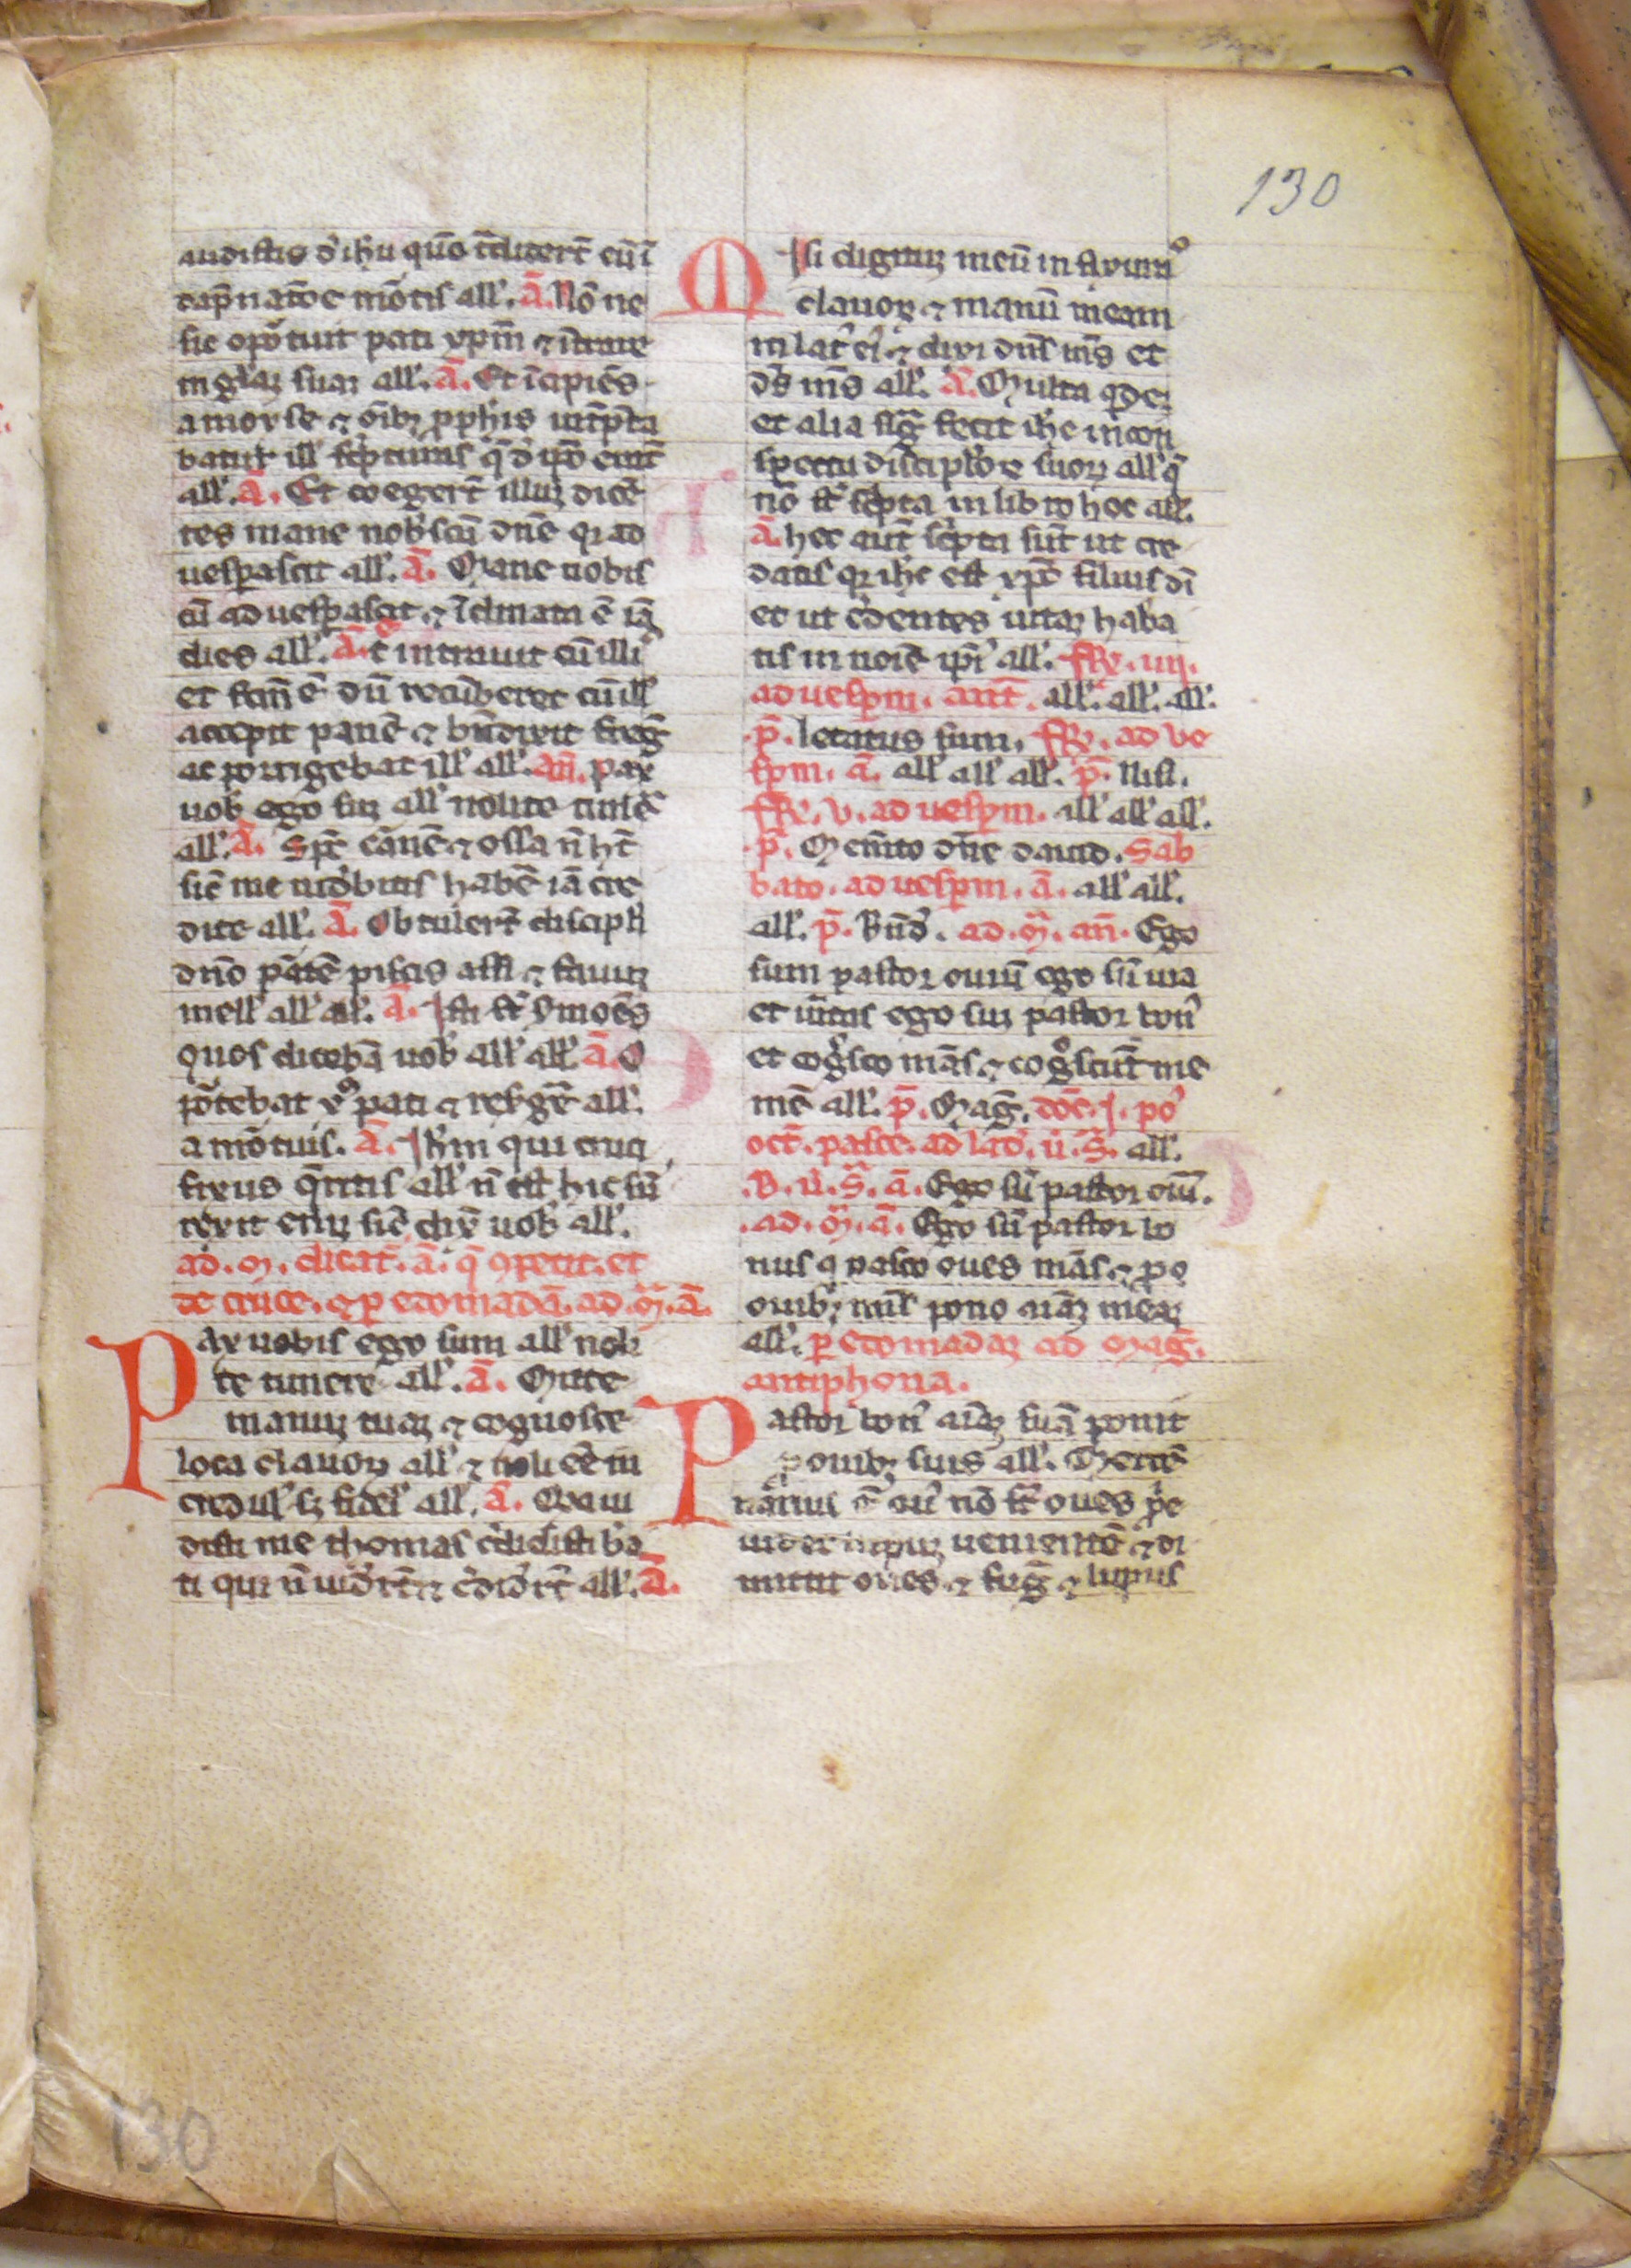 130
audistis d' ihu quō t̄didert̄ eū ī
dāpnatōe mōtis all'. ā. Nō ne
sic opo᷒tuit pati xpm̄ ⁊ īt̄rare
in gl'aꝫ suaꝫ all'. ā. Et īcipiēs
a moyse ⁊ oībꝫ pph'is int̄pt̄a
batur ill' sc̄pturis q̄ d' ipō er̄nt
all'. ā. Et coegert̄ illuꝫ dicē
tes mane nob'scū dn̄e qꝛ ad
uesꝑascit all'. ā. Mane nobis
cū aduesꝑascit ⁊ īclinata ē iā
dies all'. ā. Et intrauit cū illi'
et fcm̄ ē dū recūberet cū ill'
accepit panē ⁊ bn̄dixit freḡ
ac porrigebat ill' all'. an̄. pax
uob' ego suꝫ all' nolite timē'
all'. ā. Sp̄c cārnē ⁊ ossa n̄ ht̄
sic̄ me uid'bitis habē iā cre
dite all'. ā. Obtulert̄ discipl'i
dn̄o p̄atē piscis assi ⁊ fauuꝫ
mell' all' all'. ā. Isti st̄ s'mōēs
quos diceb'ā uob' all' all' ā. O
po᷒tebat x' pati ⁊ res'gē all'.
a mo᷒tuis. ā. Ih'm qui cruci
fixus q̄ritis all' n̄ est hic sur
rexit eniꝫ sic̄ dix̄ uob' all'.
ad. m̄. dicat̄. ā. q̄ ꝯpetit. et
de cruce. ⁊ ꝑ edomadā. ad. m̄. ā.
Pax uobis ego sum all' noli
te timere all'. ā. Mitte
manuꝫ tuaꝫ ⁊ cognosce
loca clauoꝝ all' ⁊ noli eē in
credul' sꝫ fidel' all'. ā. Quia ui
disti me thomas c̄didisti b'a
ti qui n̄ uid'rt̄ ⁊ c̄did'rt̄ all'. ā.
Misi digituꝫ meū in fixurā
clauoꝝ ⁊ manū meam
in lat' ei' ⁊ dixi dn̄s m̄s et
d's m̄s all'. ā. Multa qᵈdeꝫ
et alia sīḡ fecit ih'c in con
spectu discipl'oꝝ suoꝝ all' q̄
nō st̄ sc̄pta in libro hoc all'.
ā. hec aūt sc̄pta sūt ut cre
datis qꝛ ih'c est xp̄c filius di
et ut c̄dentes uitaꝫ habea
tis in noīe ip̄i' all'. fR'e. iiij.
ad uesꝑm. ant̄. all'. all'. all'.
p̄. letatus sum. fR'e. ad ve
sꝑm. ā. all' all' all'. p̄. Nisi.
fR'e. v. ad uesꝑm. all' all' all'.
p̄. Mem̄to dn̄e dauid. Sab
bato. ad uesꝑm. ā. all' all'.
all'. p̄. Bn̄d'. ad. m̄. an̄. Ego
sum pastor ouiū ego sū uia
et ūitas ego suꝫ pastor bon'
et cog'sco m̄as ⁊ cog'scūt me
mē all'. p̄. Mag̅. dōe. j. po᷒
oct̄. pasce. ad lād'. ū. s̄. all'.
B. ū. s̄. ā. Ego sū pastor ouiū.
ad. m̄. ā. Ego sū pastor bo
nus q pasco oues m̄as ⁊ ꝓ
ouibꝫ mīs pono aīaꝫ meaꝫ
all'. ꝑ edomadaꝫ ad mag̅.
antiphona.
Pastor bon' aīaꝫ suā ponit
ꝓ ouibꝫ suis all'. Mercē
nārius ⁊ cui' nō st̄ oues ꝓpe
uidet lupuꝫ uenientē ⁊ di
mittit oues ⁊ fug̅ ⁊ lupus
130